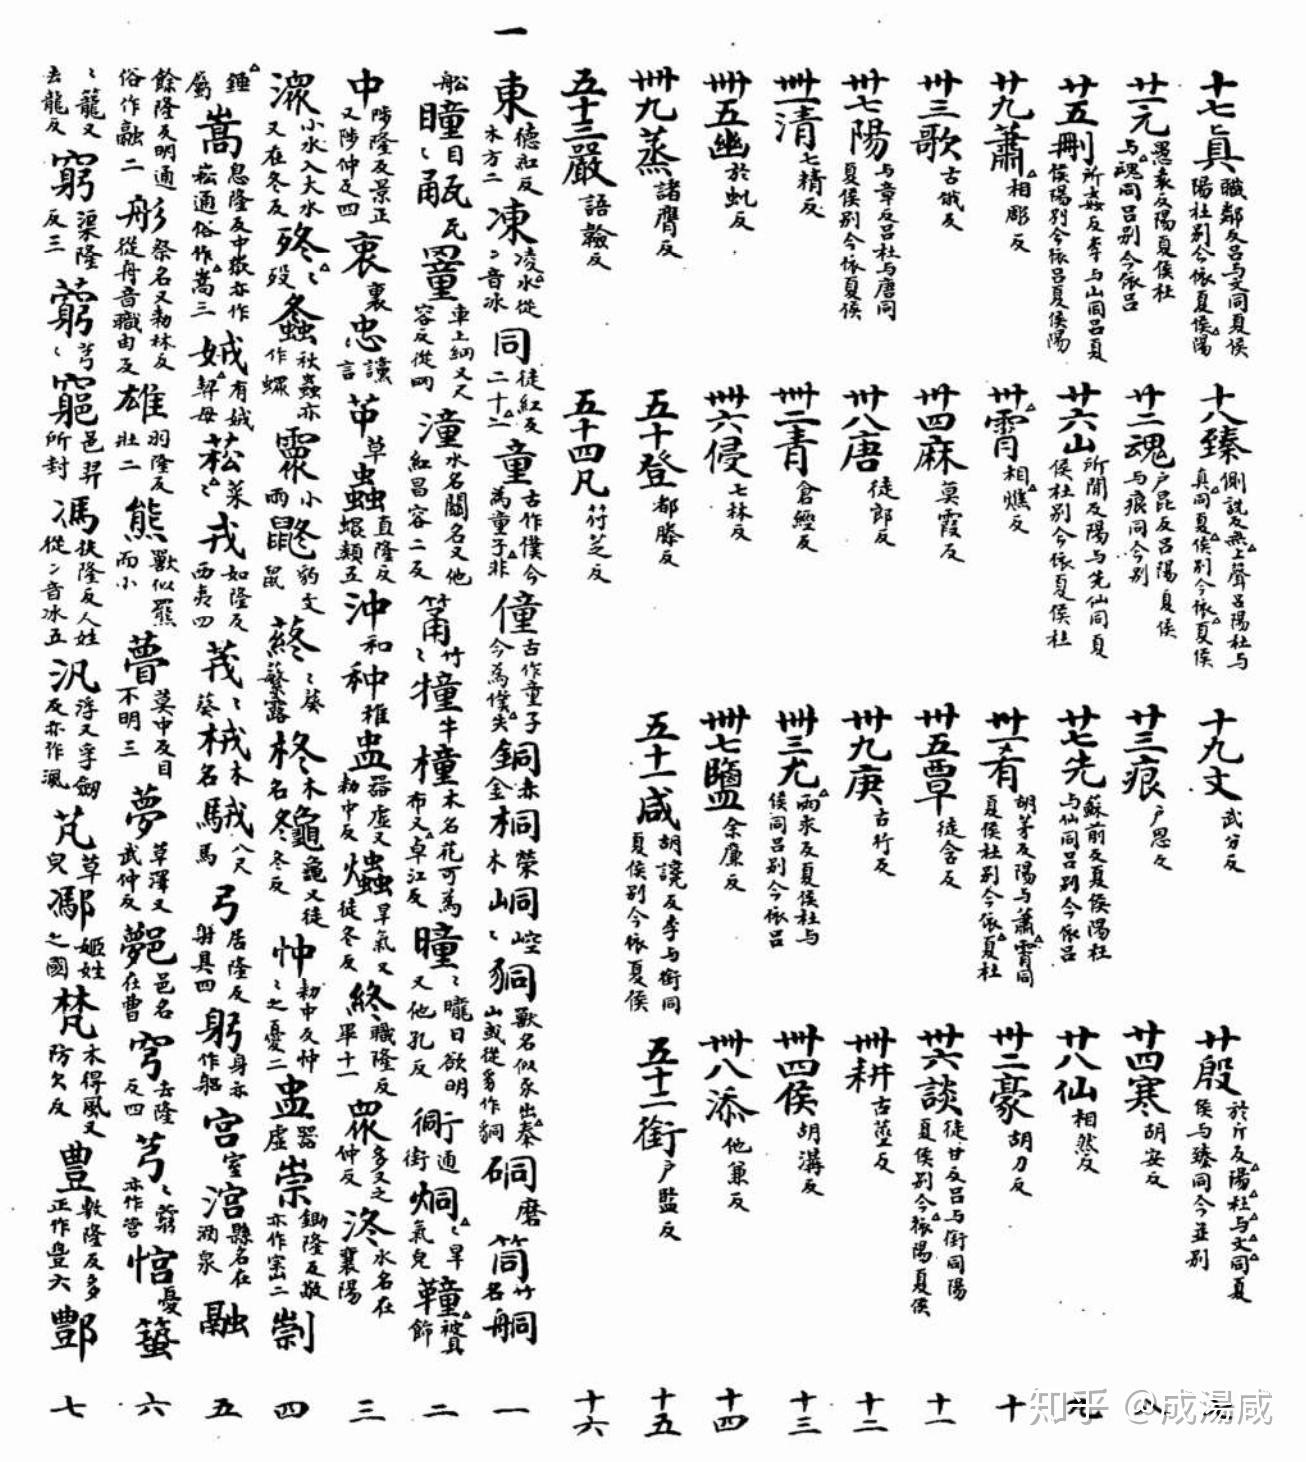 十七眞職鄰反呂与文同夏侯陽杜別今依夏侯陽 十八臻側詵反無上聲呂陽杜与真同夏侯別今依夏侯 十九文武分反 廿殷於斤反陽杜与文同夏侯与臻同今並別
廿一元愚袁反陽夏侯杜与魂同呂別今依呂 廿二魂户昆反呂陽夏侯与痕同今別 廿三痕户恩反 廿四寒胡安反 八
廿五刪所姦反李与山同呂夏侯陽別今依呂夏侯陽 廿六山所閒反陽与先仙同夏侯杜別今依夏侯杜 廿七先蘇前反夏侯陽杜与仙同呂別今依呂 廿八仙相然反 九
廿九蕭相彫反 卅霄相燋反 卅一肴胡茅反陽与蕭霄同夏侯杜別今依夏杜 卅二豪胡刀反 十
卅三歌古俄反 卅四麻莫霞反 卅五覃徒含反 卅六談徒甘反呂与銜同陽夏侯別今依陽夏侯 十一
卅七陽与章反呂杜与唐同夏侯別今依夏侯 卅八唐徒郎反 卅九庚古行反 卌耕古莖反 十二
卌一清七精反 卌二青倉經反 卌三尤雨求反夏侯杜与侯同呂別今依呂 卌四侯胡溝反 十三
卌五幽於虬反 卌六侵七林反 卌七鹽余廉反 卌八添他兼反 十四
卌九蒸諸膺反 五十登都滕反 五十一咸胡讒反李与銜同夏侯別今依夏侯 五十二銜户監反 十五
五十三嚴語𩏩反 五十四凡符芝反 十六
一東德紅反木方二凍凌水從冫音冰同徒紅反二十二童古作僮今為童子非僮古作童子今為僕失銅赤金桐木榮峒崆〻狪獸名似豕出泰山或從豸作㺠硐磨筒竹名舸 一
船瞳目〻㼧瓦𦌾車上網又尺容反從网潼水名關名又他紅昌容二反筩竹〻犝牛橦木名花可為布又卓江反曈〻曨日欲明又他孔反衕通街烔〻旱氣皃𩍅被具飾 二
中陟隆反景正又陟仲反四衷裏忠讜言苹草蟲直隆反蝦類五沖和种稚盅器虛又勑中反爞旱氣又徒冬反終職隆反畢十一眾多又之仲反泈水名在襄陽 三
潨小水入大水又在冬反㱡〻歿螽秋蟲亦作蠓霥小雨鼨豹文鼠葑〻葵蘩露柊木名𪚰龜又徒冬反忡勑中反忡〻之憂二盅器虛崇鋤隆反敬亦作崈二剬 四
鍾屬嵩息隆反中嶽亦作崧通俗作嵩三娀有娀契母菘菜〻戎如隆反西夷四茙〻葵棫木名駥馬八尺弓居隆反射具四躬身亦作躳宮室涫縣名在酒泉融 五
餘隆反明通俗作螎二肜祭名又勑林反從舟音職由反雄羽隆反壯二熊獸似羆而小瞢莫中反目不明三夢草澤又武仲反鄸邑名在曹穹去隆反四芎〻藭亦作营悺憂䖟 六
〻龍又去龍反窮渠隆反三藭芎〻竆邑羿所封馮扶隆反人姓從冫音冰五汎浮又孚劔反亦作渢芃草皃䣝姬姓之國梵木得風又防欠反豊敷隆反多正作豐六酆 七
知乎 @成湯咸